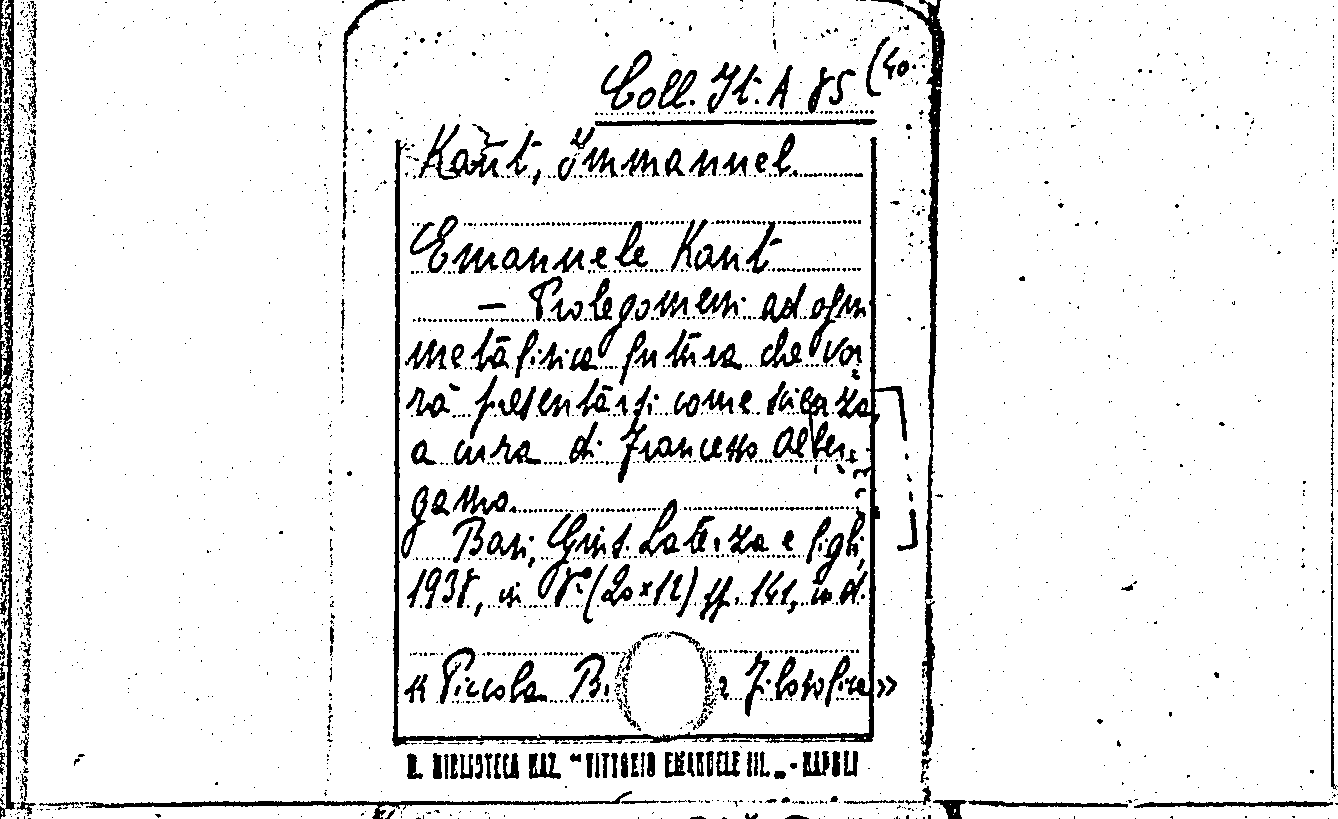 Coll. It. A 85 (40.
Kant, Immanuel.
Emanuele Kant
— Prolegomeni ad ogni
metafisica futura che vor
rà presentarsi come scienza,
a cura di Francesco Alber-
gamo.
Bari, Gius. Laterza e figli,
1938, in 8º (20×12) pp. 141, in d.
« Piccola B. Filosofica »
R. BIBLIOTECA NAZ. "VITTORIO EMANUELE III." - NAPOLI